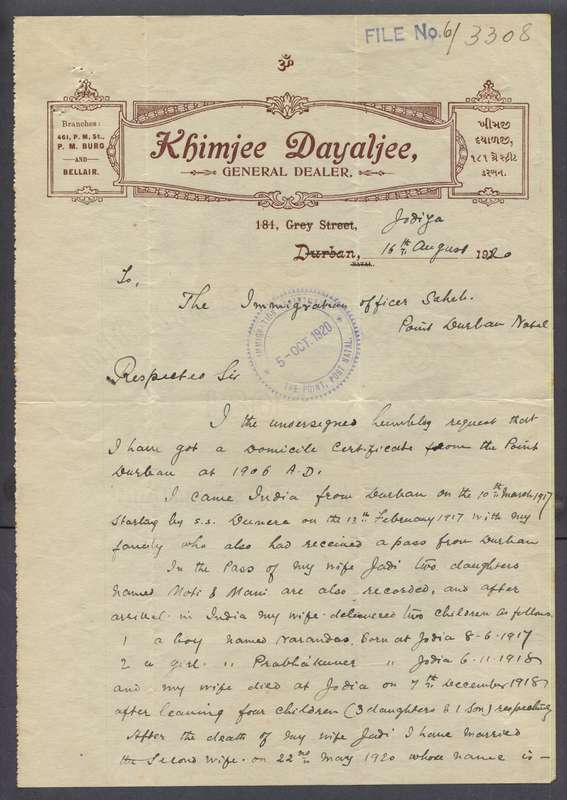 FILE No. 6/3308
ॐ
Branches:
461, P. M. St.,
P. M. BURG
AND
BELLAIR.
Khimjee Dayaljee,
GENERAL DEALER,
ખીમજી
દયાળજી,
૧૮૧ ગ્રે સ્ટ્રીટ
ડરબન.
181, Grey Street,
Jodiya
Durban, 16th August 1920
NATAL
To,
The Immigration officer Saheb.
Point Durban Natal
IMMIGRATION
5-OCT. 1920
THE POINT, PORT NATAL.
Respected Sir
I the undersigned humbly request that
I have got a Domicile Certificate from the Point
Durban at 1906 A.D.
I came India from Durban on the 10th March 1917
Starting by S.S. Dunera on the 13th February 1917 with my
family who also had received a pass from Durban
In the Pass of my wife Jadi two daughters
named Moti & Mani are also recorded, and after
arrival in India my wife delivered two children as follows.
1 a boy named Narandas. Born at Jodia 8-6-1917
2 a girl. " Prabhakuner " Jodia 6-11-1918
and my wife died at Jodia on 7th December 1918
after leaving four children (3 daughters & 1 son) respectively
After the death of my wife Jadi I have married
the Second wife on 22nd May 1920 whose name is -